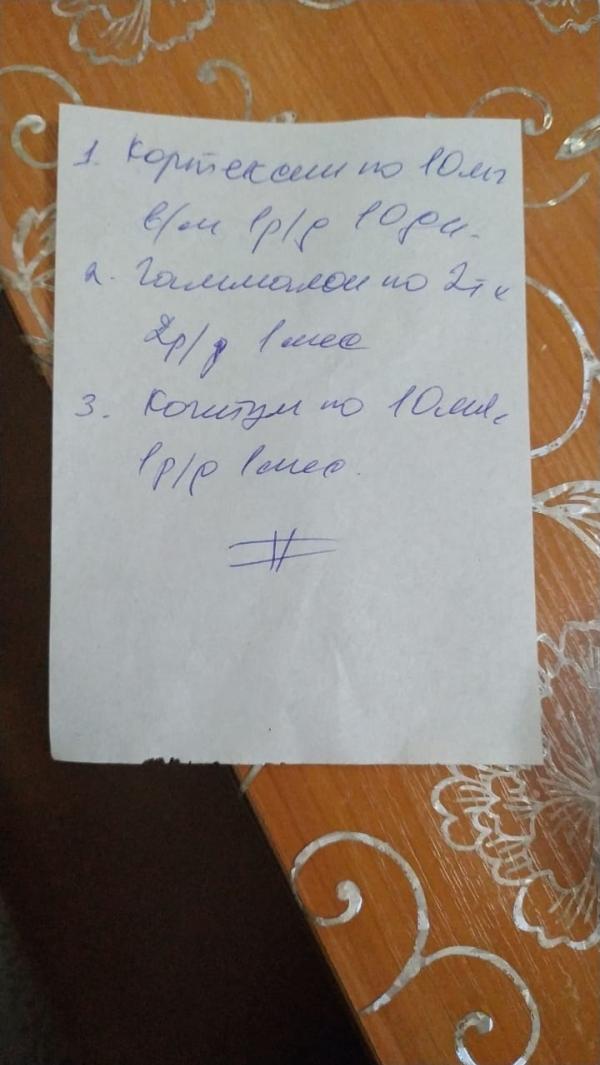 1. Кортексин по 10мг
в/м 1р/д 10дн.
2. Гаммалон по 2тх
2р/д 1мес
3. Когитум по 10мл.
1р/д 1мес.